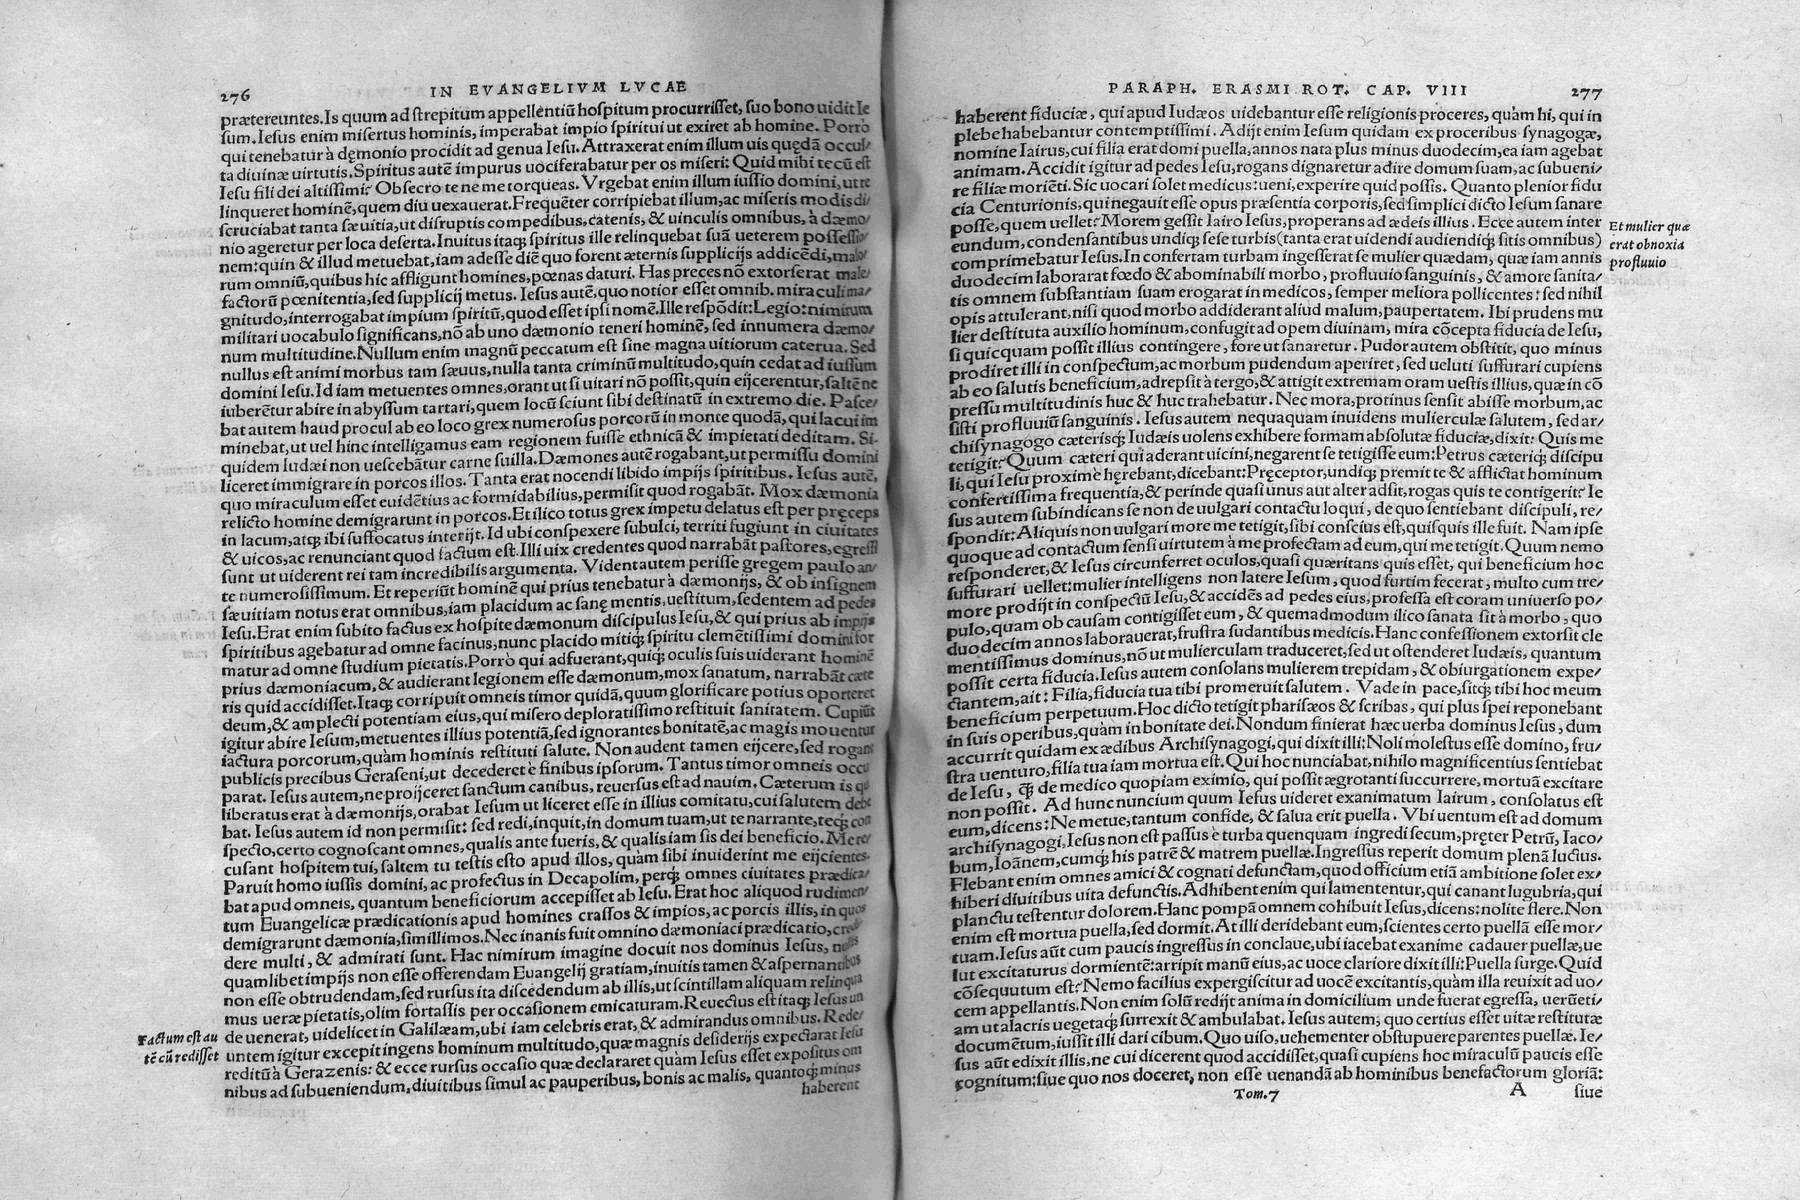 276 IN EVANGELIVM LVCAE
prætereuntes. Is quum ad ſtrepitum appellentiũ hoſpitum procurriſſet, ſuo bono uidit Ie
ſum. Ieſus enim miſertus hominis, imperabat impio ſpiritui ut exiret ab homine. Porrò
qui tenebatur à dęmonio procidit ad genua Ieſu. Attraxerat enim illum uis quędã occul/
ta diuinæ uirtutis. Spiritus autẽ impurus uociferabatur per os miſeri: Quid mihi tecũ eſt
Ieſu fili dei altiſſimi? Obſecro te ne me torqueas. Vrgebat enim illum iuſſio domini, ut re
linqueret hominẽ, quem diu uexauerat. Frequẽter corripiebat illum, ac miſeris modis di/
ſcruciabat tanta ſæuitia, ut diſruptis compedibus, catenis, & uinculis omnibus, à dæmo/
nio ageretur per loca deſerta. Inuitus itaq; ſpiritus ille relinquebat ſuã ueterem poſſeſſio/
nem: quin & illud metuebat, iam adeſſe diẽ quo forent æternis ſupplicijs addicẽdi, malo/
rum omniũ, quibus hic affligunt homines, pœnas daturi. Has preces nõ extorſerat male/
factorũ pœnitentia, ſed ſupplicij metus. Ieſus autẽ, quo notior eſſet omnib. miraculi ma/
gnitudo, interrogabat impium ſpiritũ, quod eſſet ipſi nomẽ. Ille reſpõdit: Legio: nimirum
militari uocabulo ſignificans, nõ ab uno dæmonio teneri hominẽ, ſed innumera dæmo/
num multitudine. Nullum enim magnũ peccatum eſt ſine magna uitiorum caterua. Sed
nullus eſt animi morbus tam ſæuus, nulla tanta criminũ multitudo, quin cedat ad iuſſum
domini Ieſu. Id iam metuentes omnes, orant ut ſi uitari nõ poſſit, quin eijcerentur, ſaltẽ ne
iuberẽtur abire in abyſſum tartari, quem locũ ſciunt ſibi deſtinatũ in extremo die. Paſce/
bat autem haud procul ab eo loco grex numeroſus porcorũ in monte quodã, qui lacui im
minebat, ut uel hinc intelligamus eam regionem fuiſſe ethnicã & impietati deditam. Si-
quidem Iudæi non ueſcebãtur carne ſuilla. Dæmones autẽ rogabant, ut permiſſu domini
liceret immigrare in porcos illos. Tanta erat nocendi libido impijs ſpiritibus. Ieſus autẽ,
quo miraculum eſſet euidẽtius ac formidabilius, permiſit quod rogabãt. Mox dæmonia
relicto homine demigrarunt in porcos. Et ilico totus grex impetu delatus eſt per pręceps
in lacum, atq; ibi ſuffocatus interijt. Id ubi conſpexere ſubulci, territi fugiunt in ciuitates
& uicos, ac renunciant quod factum eſt. Illi uix credentes quod narrabãt paſtores, egreſſi
ſunt ut uiderent rei tam incredibilis argumenta. Vident autem perijſſe gregem paulo an/
te numeroſiſſimum. Et reperiũt hominẽ qui prius tenebatur à dæmonijs, & ob inſignem
ſæuitiam notus erat omnibus, iam placidum ac ſanę mentis, ueſtitum, ſedentem ad pedes
Ieſu. Erat enim ſubito factus ex hoſpite dæmonum diſcipulus Ieſu, & qui prius ab impijs
ſpiritibus agebatur ad omne facinus, nunc placido mitiq; ſpiritu clemẽtiſſimi domini for
matur ad omne ſtudium pietatis. Porrò qui adfuerant, quiq; oculis ſuis uiderant hominẽ
prius dæmoniacum, & audierant legionem eſſe dæmonum, mox ſanatum, narrabãt cæte
ris quid accidiſſet. Itaq; corripuit omneis timor quidã, quum glorificare potius oporteret
deum, & amplecti potentiam eius, qui miſero deploratiſſimo reſtituit ſanitatem. Cupiũt
igitur abire Ieſum, metuentes illius potentiã, ſed ignorantes bonitatẽ, ac magis mouentur
iactura porcorum, quàm hominis reſtituti ſalute. Non audent tamen eijcere, ſed rogant
publicis precibus Geraſeni, ut decederet è finibus ipſorum. Tantus timor omneis occu
parat. Ieſus autem, ne proijceret ſanctum canibus, reuerſus eſt ad nauim. Cæterum is qui
liberatus erat à dæmonijs, orabat Ieſum ut liceret eſſe in illius comitatu, cui ſalutem debe
bat. Ieſus autem id non permiſit: ſed redi, inquit, in domum tuam, ut te narrante, teq; con
ſpecto, certo cognoſcant omnes, qualis ante fueris, & qualis iam ſis dei beneficio. Mere/
cuſant hoſpitem tui, ſaltem tu teſtis eſto apud illos, quàm ſibi inuiderint me eijcientes.
Paruit homo iuſſis domini, ac profectus in Decapolim, perq; omnes ciuitates prædica/
bat apud omneis, quantum beneficiorum accepiſſet ab Ieſu. Erat hoc aliquod rudimen/
tum Euangelicæ prædicationis apud homines craſſos & impios, ac porcis illis, in quos
demigrarunt dæmonia, ſimillimos. Nec inanis fuit omnino dæmoniaci prædicatio,
dere multi, & admirati ſunt. Hac nimirum imagine docuit nos dominus Ieſus,
quamlibet impijs non eſſe offerendam Euangelij gratiam, inuitis tamen & aſpernantibus
non eſſe obtrudendam, ſed rurſus ita diſcedendum ab illis, ut ſcintillam aliquam relinqua
mus ueræ pietatis, olim fortaſſis per occaſionem emicaturam. Reuectus eſt itaq; Ieſus un
Factum eſt au de uenerat, uidelicet in Galilæam, ubi iam celebris erat, & admirandus omnibus. Rede/
tẽ cũ rediſſet untem igitur excepit ingens hominum multitudo, quæ magnis deſiderijs expectarat Ieſu
reditũ à Gerazenis: & ecce rurſus occaſio quæ declararet quàm Ieſus eſſet expoſitus om
nibus ad ſubueniendum, diuitibus ſimul ac pauperibus, bonis ac malis, quantoq; minus
haberent
PARAPH. ERASMI ROT. CAP. VIII 277
haberent fiduciæ, qui apud Iudæos uidebantur eſſe religionis proceres, quàm hi, qui in
plebe habebantur contemptiſſimi. Adijt enim Ieſum quidam ex proceribus ſynagogæ,
nomine Iairus, cui filia erat domi puella, annos nata plus minus duodecim, ea iam agebat
animam. Accidit igitur ad pedes Ieſu, rogans dignaretur adire domum ſuam, ac ſubueni/
re filiæ moriẽti. Sic uocari ſolet medicus: ueni, experire quid poſſis. Quanto plenior fidu
cia Centurionis, qui negauit eſſe opus præſentia corporis, ſed ſimplici dicto Ieſum ſanare
poſſe, quem uellet? Morem geſſit Iairo Ieſus, properans ad ædeis illius. Ecce autem inter
eundum, condenſantibus undiq; ſeſe turbis (tanta erat uidendi audiendiq; ſitis omnibus)
comprimebatur Ieſus. In confertam turbam ingeſſerat ſe mulier quædam, quæ iam annis
Et mulier quæ
erat obnoxia
profluuio
duodecim laborarat fœdo & abominabili morbo, profluuio ſanguinis, & amore ſanita/
tis omnem ſubſtantiam ſuam erogarat in medicos, ſemper meliora pollicentes: ſed nihil
opis attulerant, niſi quod morbo addiderant aliud malum, paupertatem. Ibi prudens mu
lier deſtituta auxilio hominum, confugit ad opem diuinam, mira cõcepta fiducia de Ieſu,
ſi quicquam poſſit illius contingere, fore ut ſanaretur. Pudor autem obſtitit, quo minus
prodiret illi in conſpectum, ac morbum pudendum aperiret, ſed ueluti ſuffurari cupiens
ab eo ſalutis beneficium, adrepſit à tergo, & attigit extremam oram ueſtis illius, quæ in cõ
preſſu multitudinis huc & huc trahebatur. Nec mora, protinus ſenſit abiſſe morbum, ac
ſiſti profluuiũ ſanguinis. Ieſus autem nequaquam inuidens mulierculæ ſalutem, ſed ar/
chiſynagogo cæterisq; Iudæis uolens exhibere formam abſolutæ fiduciæ, dixit: Quis me
tetigit? Quum cæteri qui aderant uicini, negarent ſe tetigiſſe eum: Petrus cæteriq; diſcipu
li, qui Ieſu proximè hęrebant, dicebant: Pręceptor, undiq; premit te & afflictat hominum
confertiſſima frequentia, & perinde quaſi unus aut alter adſit, rogas quis te contigerit? Ie
ſus autem ſubindicans ſe non de uulgari contactu loqui, de quo ſentiebant diſcipuli, re/
ſpondit: Aliquis non uulgari more me tetigit, ſibi conſcius eſt, quiſquis ille fuit. Nam ipſe
quoque ad contactum ſenſi uirtutem à me profectam ad eum, qui me tetigit. Quum nemo
reſponderet, & Ieſus circunferret oculos, quaſi quæritans quis eſſet, qui beneficium hoc
ſuffurari uellet: mulier intelligens non latere Ieſum, quod furtim fecerat, multo cum tre/
more prodijt in conſpectũ Ieſu, & accidẽs ad pedes eius, profeſſa eſt coram uniuerſo po/
pulo, quam ob cauſam contigiſſet eum, & quemadmodum ilico ſanata ſit à morbo, quo
duodecim annos laborauerat, fruſtra ſudantibus medicis. Hanc confeſſionem extorſit cle
mentiſſimus dominus, nõ ut mulierculam traduceret, ſed ut oſtenderet Iudæis, quantum
poſſit certa fiducia. Ieſus autem conſolans mulierem trepidam, & obiurgationem expe/
ctantem, ait: Filia, fiducia tua tibi promeruit ſalutem. Vade in pace, ſitq; tibi hoc meum
beneficium perpetuum. Hoc dicto tetigit phariſæos & ſcribas, qui plus ſpei reponebant
in ſuis operibus, quàm in bonitate dei. Nondum finierat hæc uerba dominus Ieſus, dum
accurrit quidam ex ædibus Archiſynagogi, qui dixit illi: Noli moleſtus eſſe domino, fru/
ſtra uenturo, filia tua iam mortua eſt. Qui hoc nunciabat, nihilo magnificentius ſentiebat
de Ieſu, q̃; de medico quopiam eximio, qui poſſit ægrotanti ſuccurrere, mortuã excitare
non poſſit. Ad hunc nuncium quum Ieſus uideret exanimatum Iairum, conſolatus eſt
eum, dicens: Ne metue, tantum confide, & ſalua erit puella. Vbi uentum eſt ad domum
archiſynagogi, Ieſus non eſt paſſus è turba quenquam ingredi ſecum, pręter Petrũ, Iaco/
bum, Ioãnem, cumq; his patrẽ & matrem puellæ. Ingreſſus reperit domum plenã luctus.
Flebant enim omnes amici & cognati defunctam, quod officium etiã ambitione ſolet ex/
hiberi diuitibus uita defunctis. Adhibent enim qui lamententur, qui canant lugubria, qui
planctu teſtentur dolorem. Hanc pompã omnem cohibuit Ieſus, dicens: nolite flere. Non
enim eſt mortua puella, ſed dormit. At illi deridebant eum, ſcientes certo puellã eſſe mor/
tuam. Ieſus aũt cum paucis ingreſſus in conclaue, ubi iacebat exanime cadauer puellæ, ue
lut excitaturus dormientẽ: arripit manũ eius, ac uoce clariore dixit illi: Puella ſurge. Quid
cõſequutum eſt? Nemo facilius expergiſcitur ad uocẽ excitantis, quàm illa reuixit ad uo/
cem appellantis. Non enim ſolũ redijt anima in domicilium unde fuerat egreſſa, uerũeti/
am ut alacris uegetaq; ſurrexit & ambulabat. Ieſus autem, quo certius eſſet uitæ reſtitutæ
documẽtum, iuſſit illi dari cibum. Quo uiſo, uehementer obſtupuere parentes puellæ. Ie/
ſus aũt edixit illis, ne cui dicerent quod accidiſſet, quaſi cupiens hoc miraculũ paucis eſſe
cognitum: ſiue quo nos doceret, non eſſe uenandã ab hominibus benefactorum gloriã:
Tom. 7 A ſiue